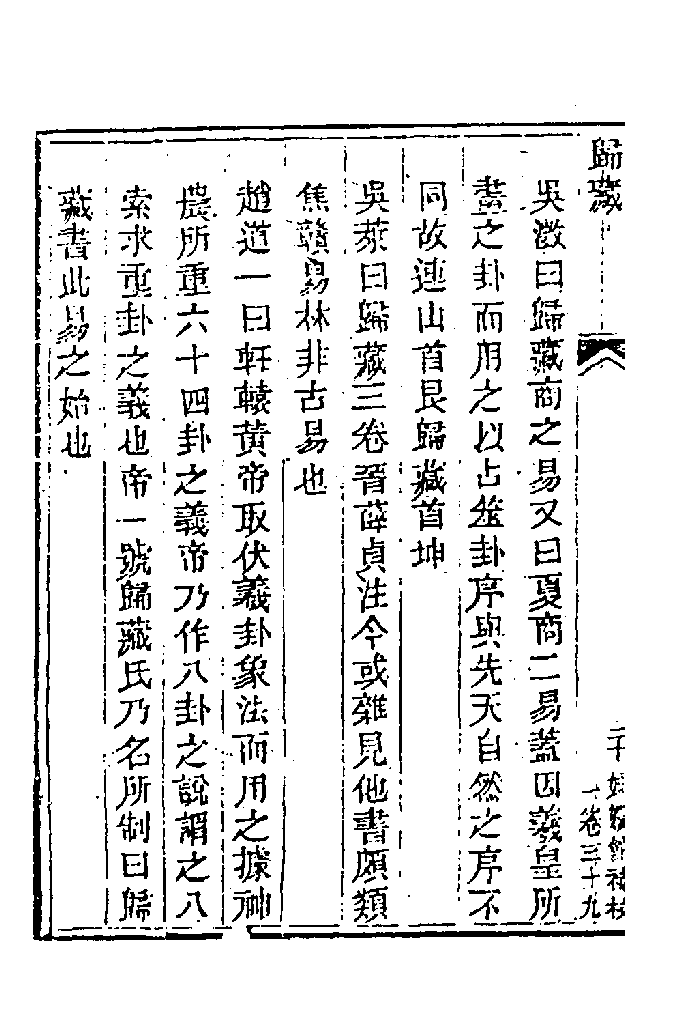 歸藏
吳澂曰歸藏商之易又曰夏商二易蓋因羲皇所
畫之卦而用之以占筮卦序與先天自然之序不
同故連山首艮歸藏首坤
吳萊曰歸藏三卷晉薛貞注今或雜見他書頗類
焦贛易林非古易也
趙道一曰軒轅黃帝取伏羲卦象法而用之據神
農所重六十四卦之義帝乃作八卦之說謂之八
索求重卦之義也帝一號歸藏氏乃名所制曰歸
藏書此易之始也
卷三十九